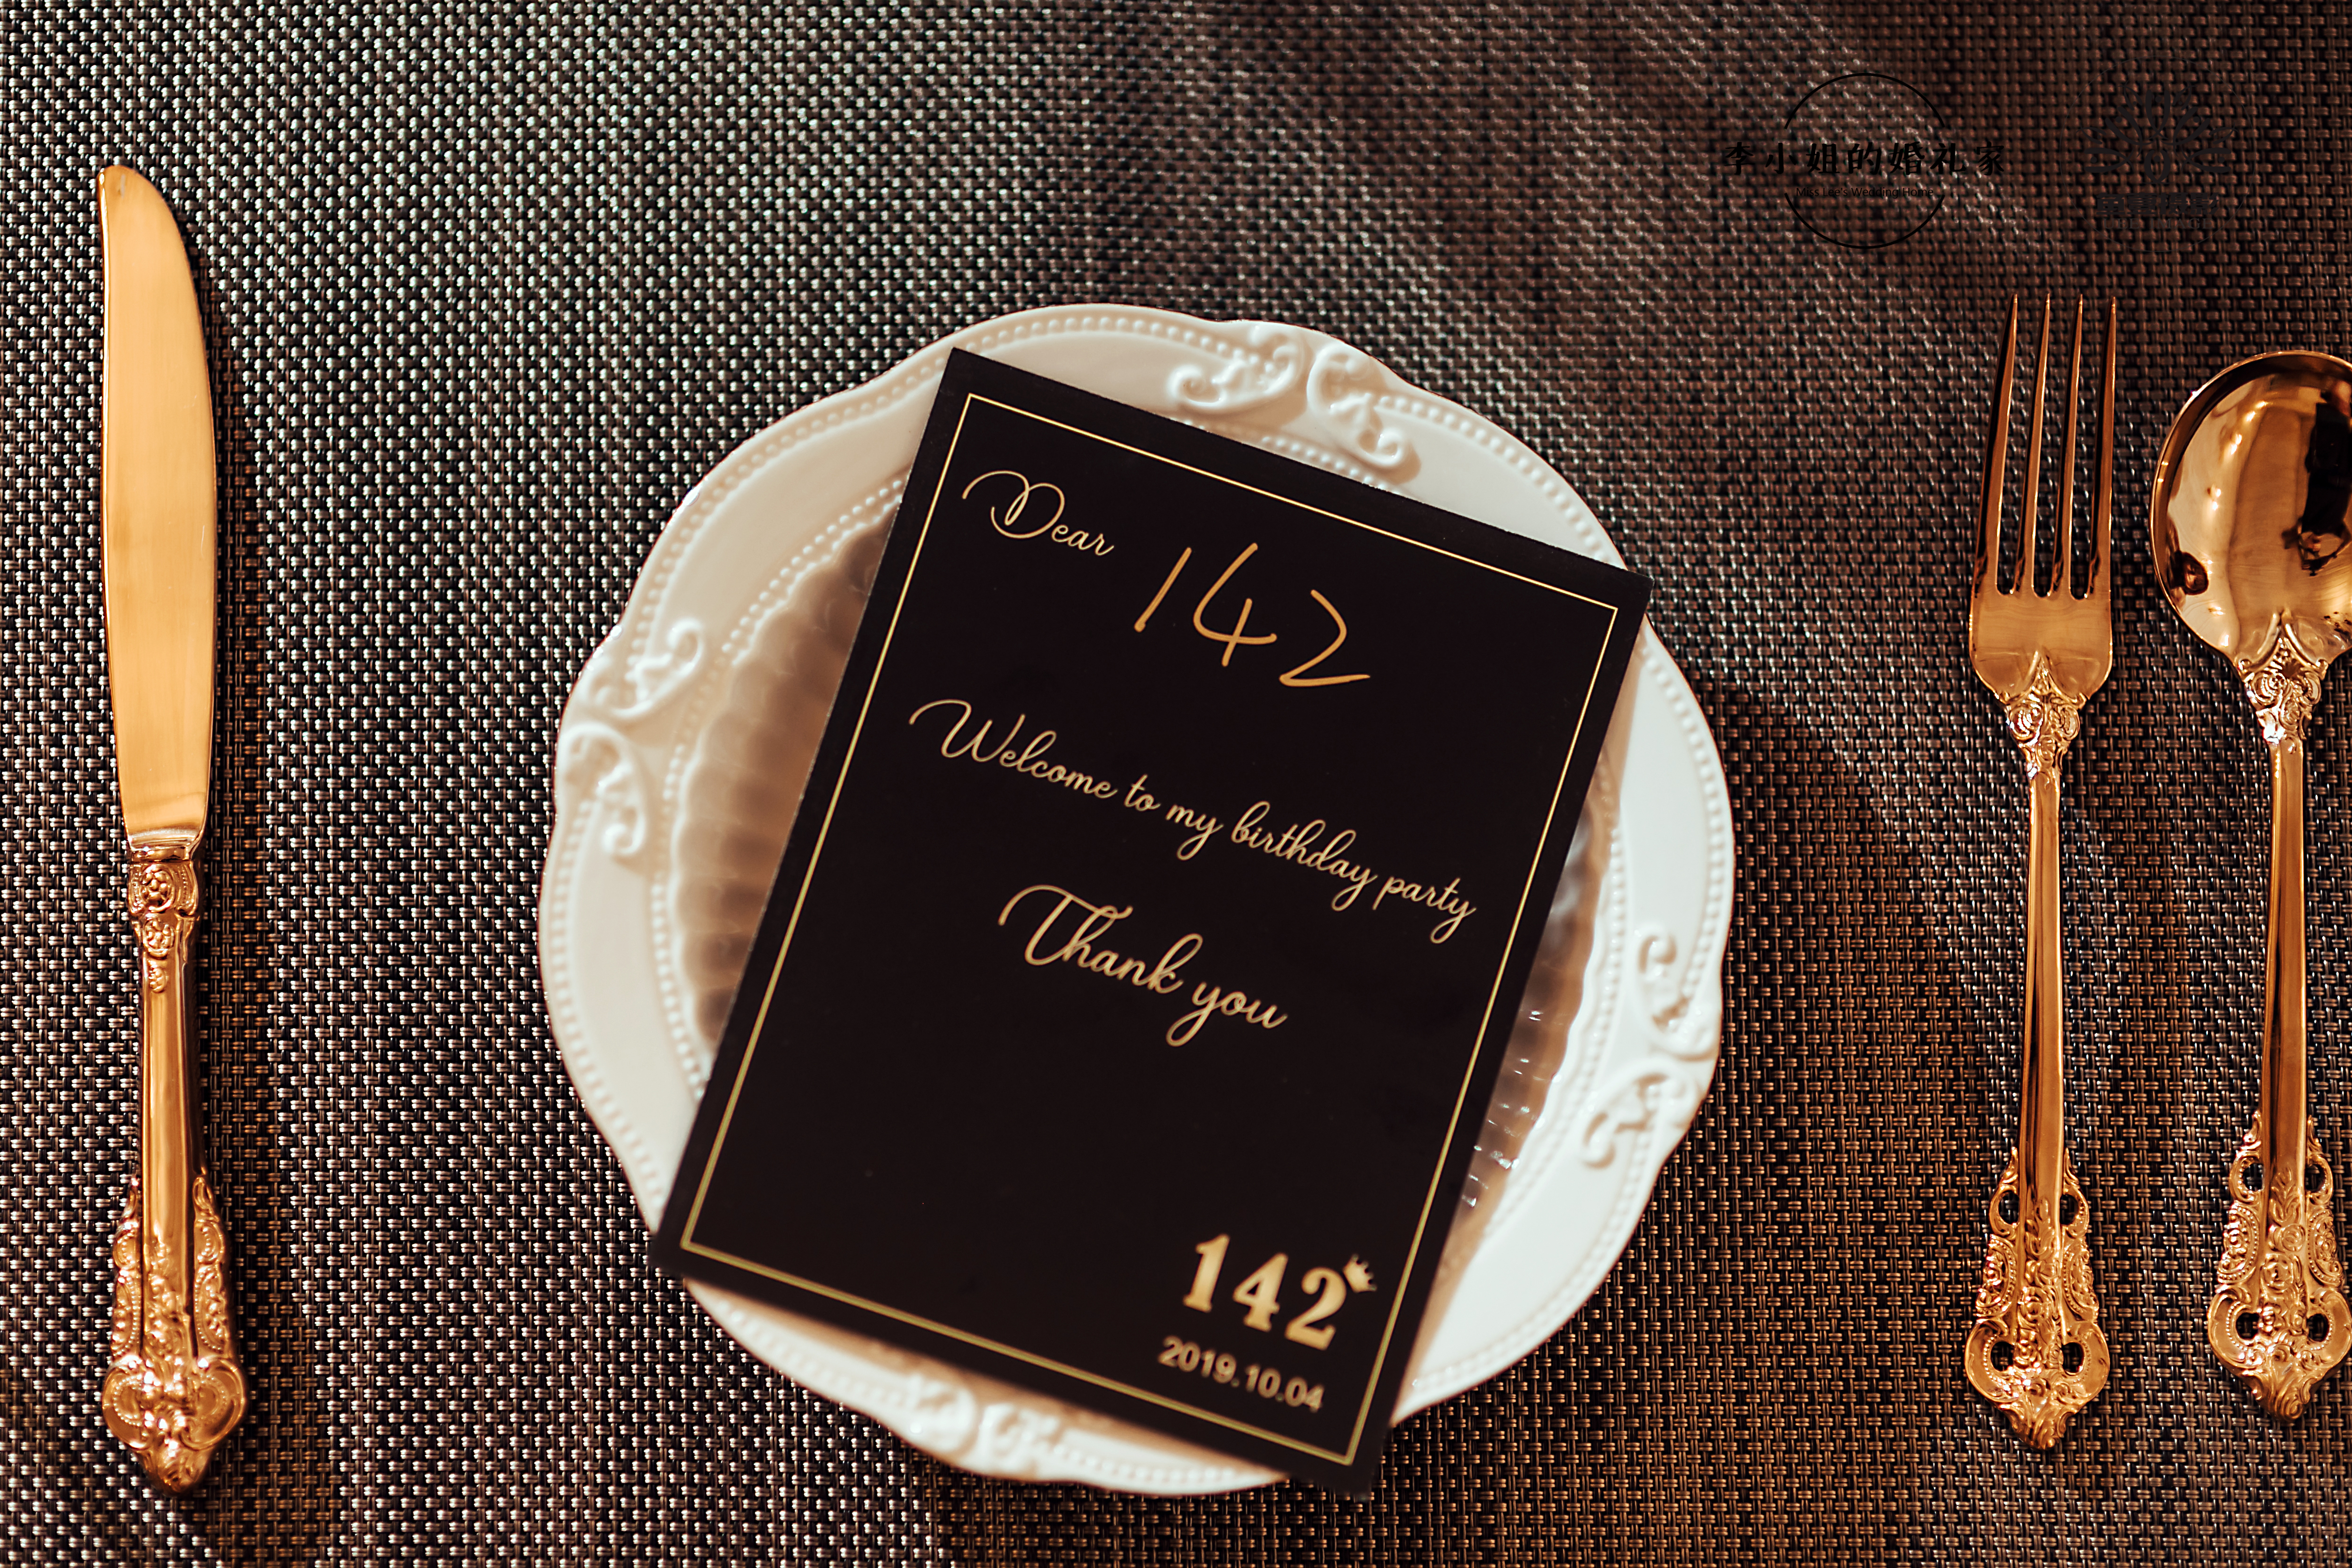 李小姐的婚礼家
Miss Lee's Wedding Home
Dear 142
Welcome to my birthday party
Thank you
142
2019.10.04